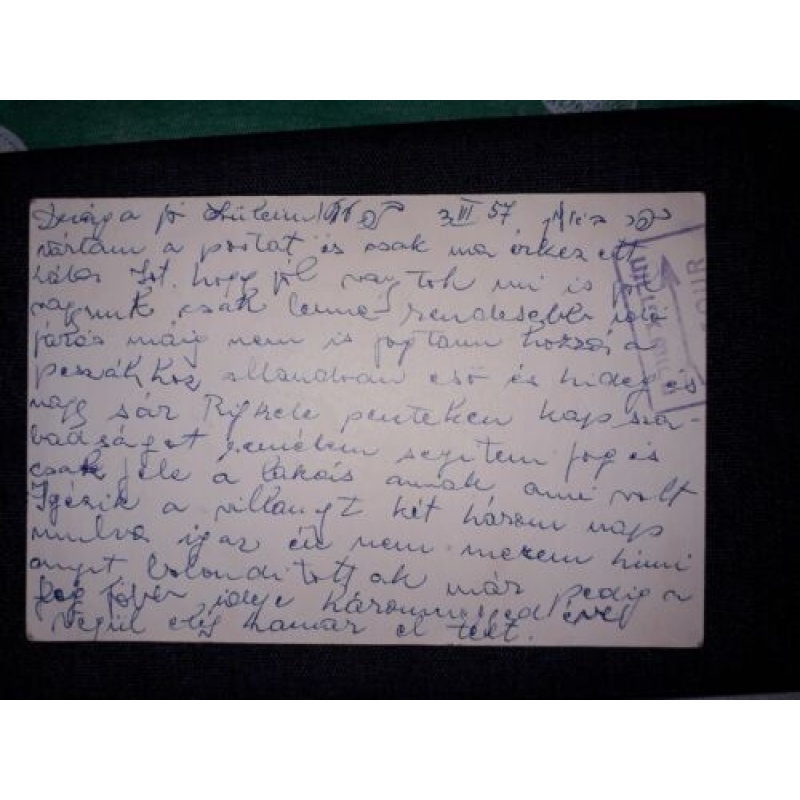 Drága jó Szüleim 3 VI 57
vártam a postát és csak ma érkezett
hála Ist. hogy jól vagytok mi is jól
vagyunk csak lenne rendesebb idő
járás máig nem is fogtam hozzá a
peszákhoz állandoan eső és hideg és
nagy sár penteken kap sza-
badságot remélem segiteni fog és
csak fele a lakás annak ami volt
Igérik a villanyt két három nap
mulva igaz én nem merem hinni
annyit bolonditottak már pedig
ideje háromnegyed éve
végül elég hamar el telt.